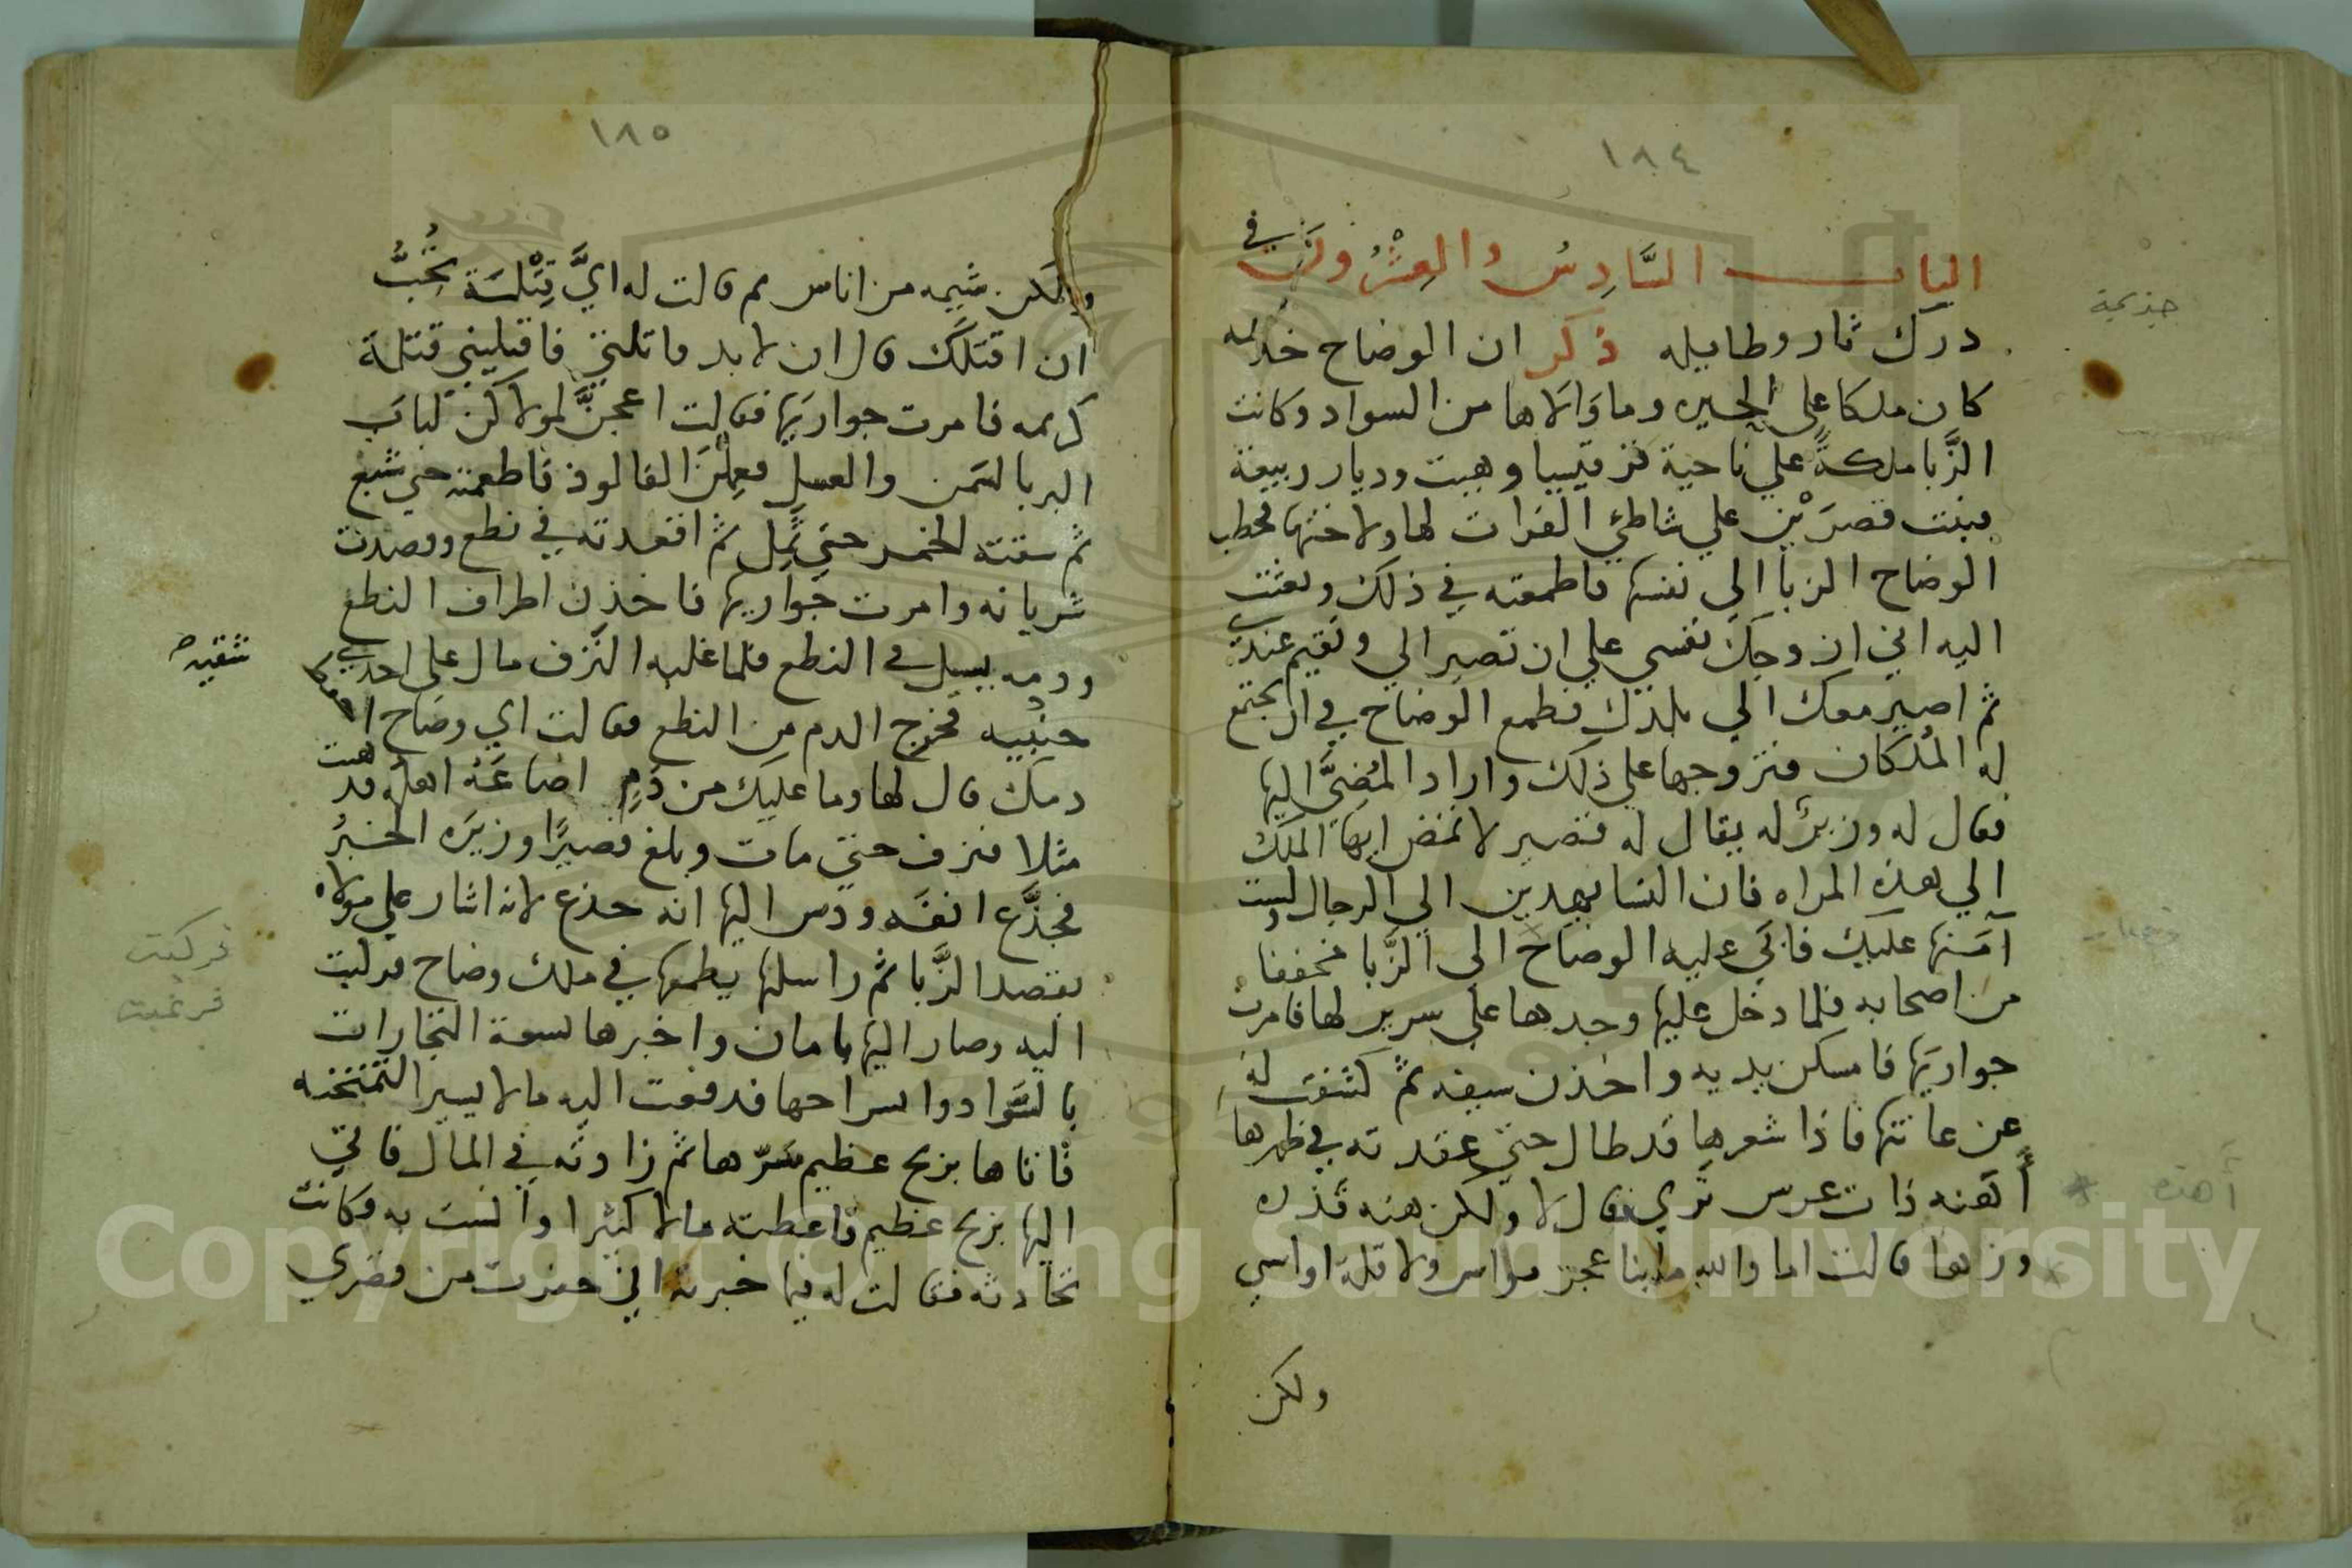 ١٨٤
الباب السَّادِسُ والعِشْرُونَ في
درك ثار وطايله ذكر ان الوضاح خذيمه
كان ملكا على الحيره وما وَالَاها من السواد وكانت
الزَّبا ملكةً علي ناحية قرقيسيا وهيت وديار ربيعة
فبنت قصرَيْن علي شاطئ الفرات لها ولاختها فخطب
الوضاح الزبا الي نفسها فاطمعته في ذلك وبعثت
اليه اني ازوجك نفسي علي ان تصير الي وتقيم عندي
ثم اصير معك الي بلدك فطمع الوضاح في ان يجتمع
له المُلكان فتزوجها علي ذلك واراد المُضِيَّ اليها
فقال له وزيرٌ له يقال له قصير لا تمض ايها الملك
الي هذه المراه فان النسا يهدين الي الرجال ولست
آمنها عليك فابَي عليه الوضاح الي الزَّبا مخففا
من اصحابه فلما دخل عليها وجدها علي سرير لها فامرت
جواريَها فامسكن يديه واخذن سيفه ثم كشفت له
عن عانتها فاذا شعرها قد طال حتي عقدته في ظهرها
أهنه ذات عرس تَري فقال لا ولكن هنه قذره
وزها قالت اما والله ما بنا عجز مواس ولا قلة اواسي
ولكن
جذيمة
أهذه
١٨٥
ولكن شيمه من اناس ثم قالت له ايَّ قِتْلَة تُحِبُّ
ان اقتلَكَ قال ان لا بد قاتلتي فاقتليني قتلة
كريمه فامرت جواريَها فقالت اعجنَّ لمولاكن لُبابَ
البر بالسمن والعسل فعملن الفالوذ فاطعمته حتي شبع
ثم سقته الخمر حتي ثَمِل ثم اقعدته في نطع وفصدت
شريانه وامرت جواريها فاخذن اطراف النطع
ودمه يسيل في النطع فلما غلبه النَّزف مال علي احدي
جنبيه فخرج الدم من النطع فقالت اي وضاح اكرم
دمك قال لها وما عليك من دَمٍ اضاعَهُ اهله فذهبت
مثلا فنزف حتي مات وبلغ قصيرًا وزيرَه الخبرُ
فجدَّع انفَه ودس اليها انه جذع لانه اشار علي مولاه
بقصد الزَّبا ثم راسلها يطمعها في ملك وضاح فركيت
اليه وصار اليها بامان واخبرها بسعة التجارات
بالسَّواد وانسراحها فدفعت اليه مالا يسيرا لتمتحنه
فاتاها بربح عظيم سَرّها ثم زادته في المال فاتي
اليها بربح عظيم فاعطته مالا كثيرا وانست به وكانت
تحادثه فقالت له فيما خبرته اني حفرت من قصري
شقيه
فركيت
فرغبت
Copyright © King Saud University